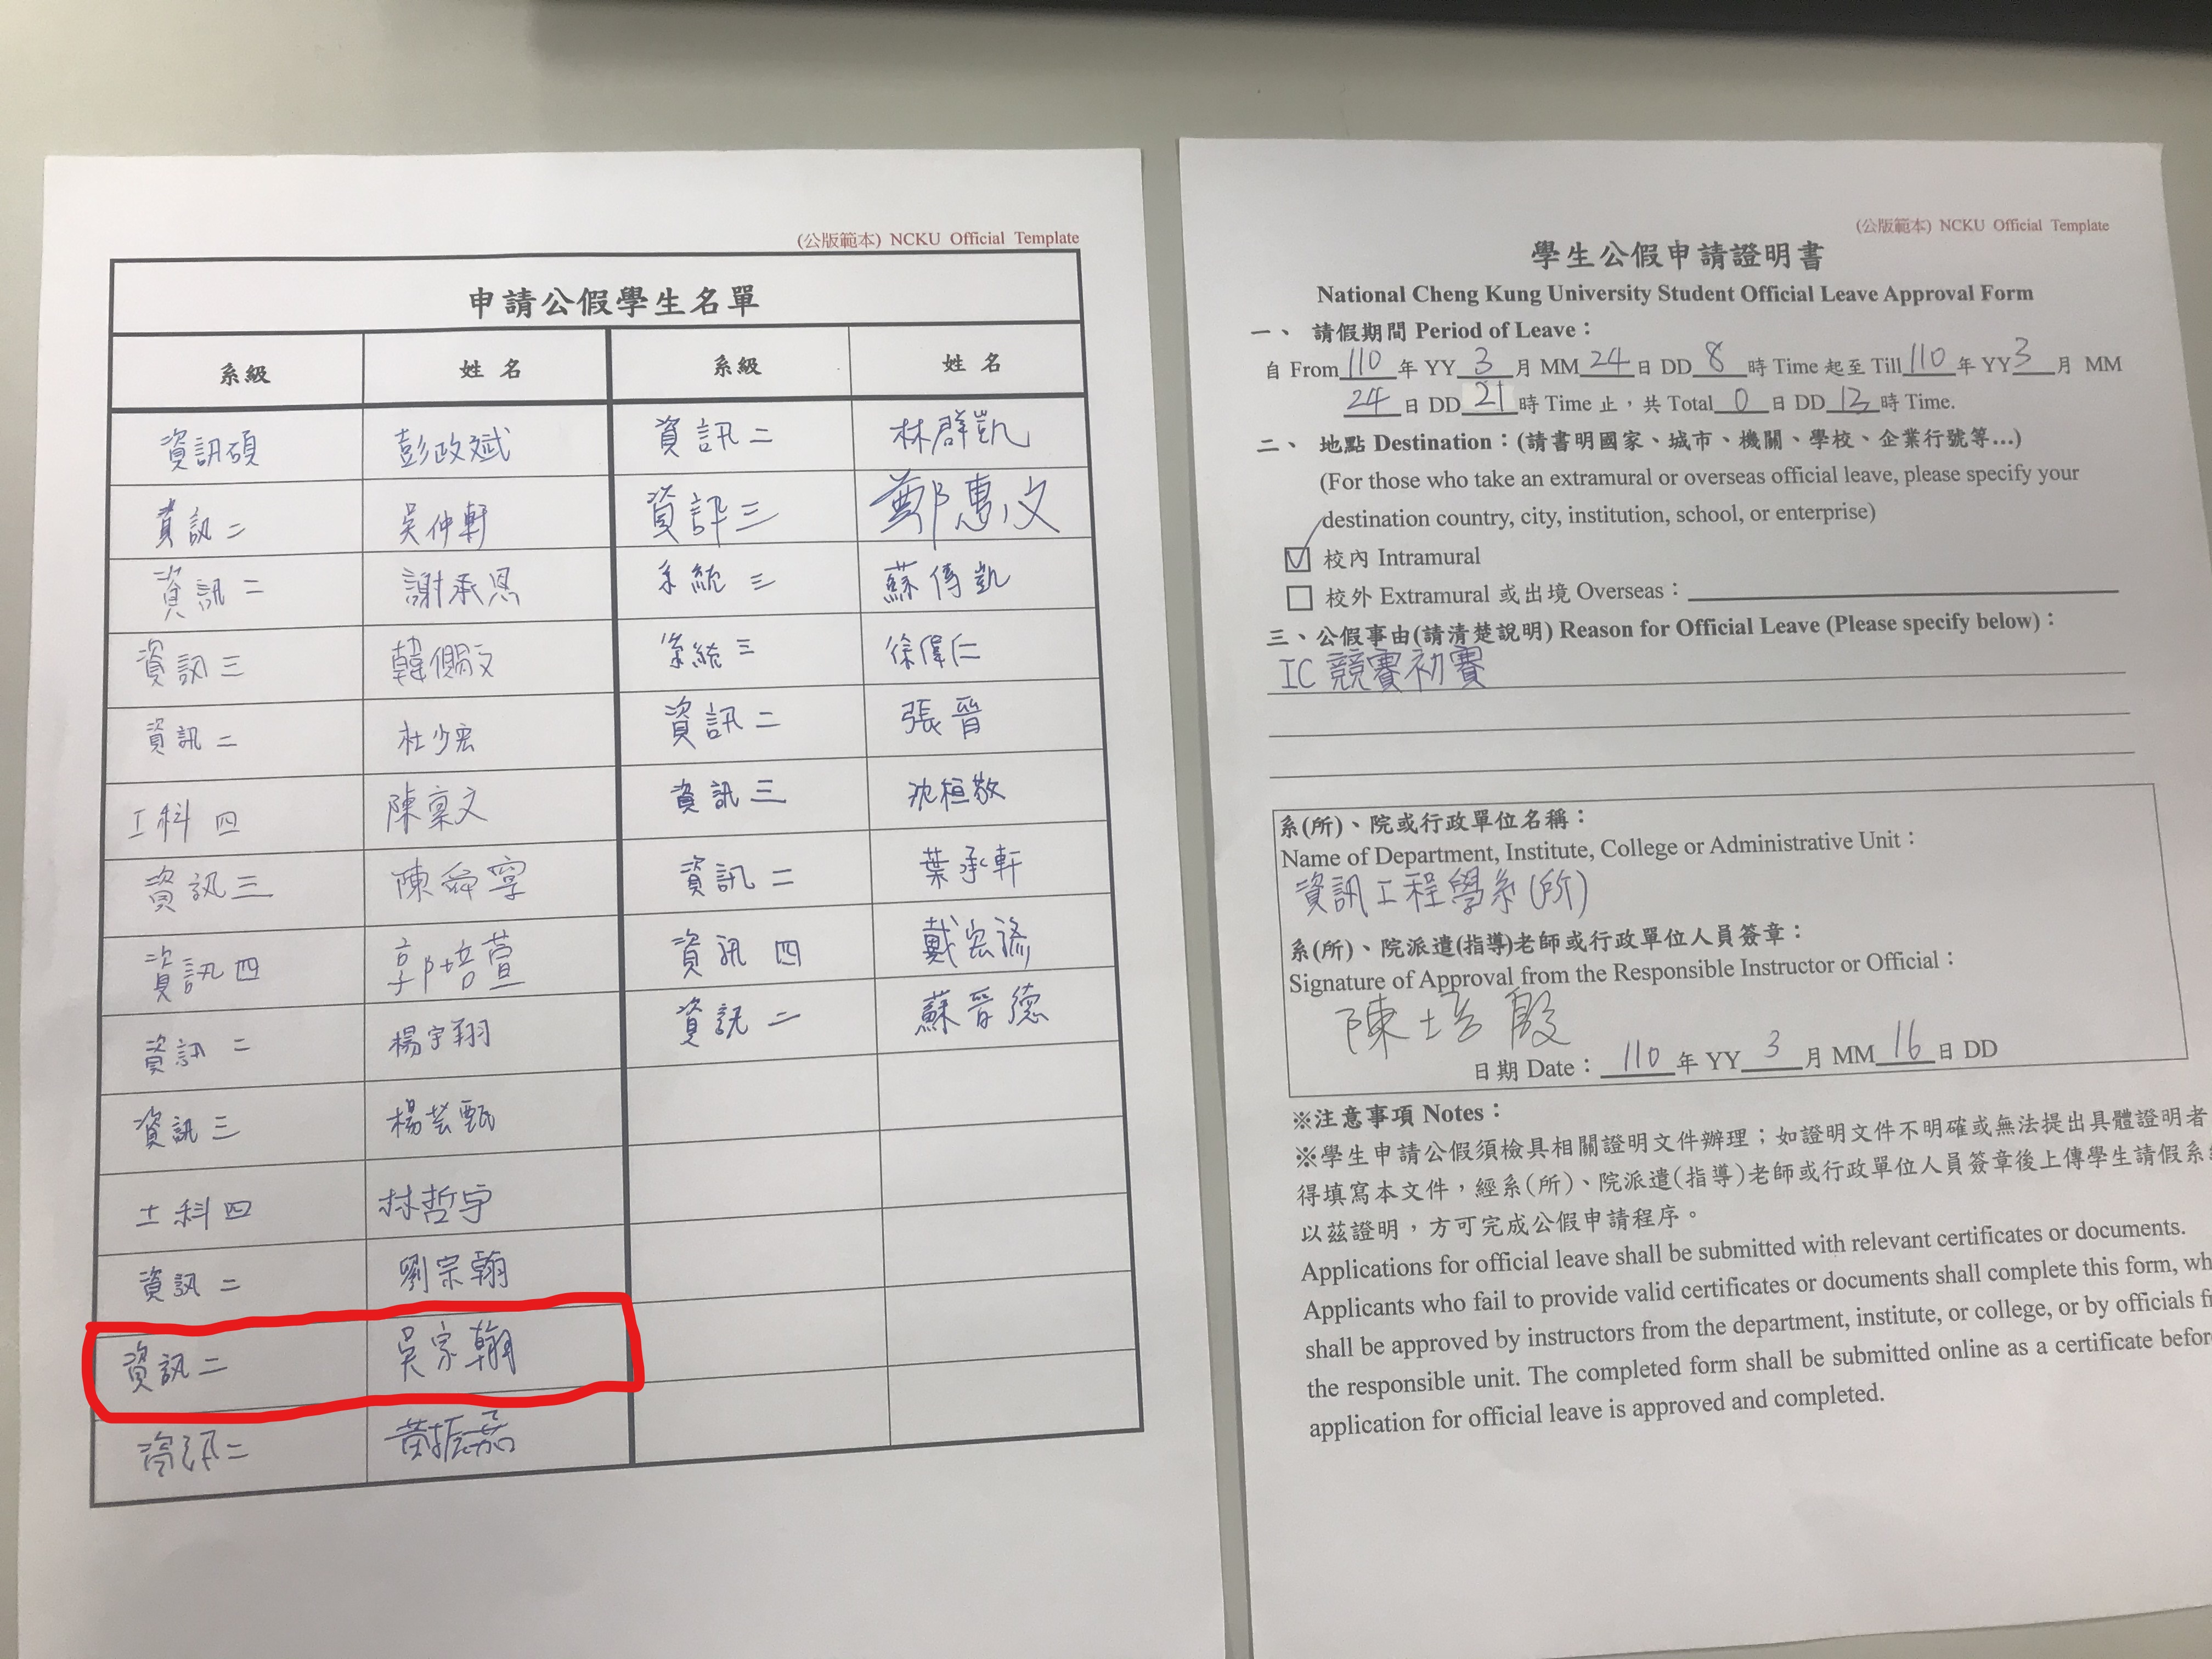 (公版範本) NCKU Official Template
申請公假學生名單
系級 姓名 系級 姓名
資訊碩 彭政斌 資訊二 林群凱
資訊二 吳仲軒 資訊三 鄭惠文
資訊二 謝承恩 系統三 蘇傳凱
資訊三 韓賜文 系統三 徐偉仁
資訊二 杜少宏 資訊二 張晉
工科四 陳稟文 資訊三 沈桓敬
資訊三 陳舜寧 資訊二 葉承軒
資訊四 郭培萱 資訊四 戴宏諭
資訊二 楊宇翔 資訊二 蘇晉德
資訊三 楊芸甄
工科四 林哲宇
資訊二 劉宗翰
資訊二 吳宗翰
資訊二 黃振嘉
(公版範本) NCKU Official Template
學生公假申請證明書
National Cheng Kung University Student Official Leave Approval Form
一、 請假期間 Period of Leave:
自 From 110 年 YY 3 月 MM 24 日 DD 8 時 Time 起至 Till 110 年 YY 3 月 MM
24 日 DD 21 時 Time 止,共 Total 0 日 DD 13 時 Time.
二、 地點 Destination:(請書明國家、城市、機關、學校、企業行號等…)
(For those who take an extramural or overseas official leave, please specify your
destination country, city, institution, school, or enterprise)
校內 Intramural
校外 Extramural 或出境 Overseas:
三、公假事由(請清楚說明) Reason for Official Leave (Please specify below):
IC 競賽初賽
系(所)、院或行政單位名稱:
Name of Department, Institute, College or Administrative Unit:
資訊工程學系(所)
系(所)、院派遣(指導)老師或行政單位人員簽章:
Signature of Approval from the Responsible Instructor or Official:
陳培殷
日期 Date: 110 年 YY 3 月 MM 16 日 DD
※注意事項 Notes:
※學生申請公假須檢具相關證明文件辦理;如證明文件不明確或無法提出具體證明者
得填寫本文件,經系(所)、院派遣(指導)老師或行政單位人員簽章後上傳學生請假系
以茲證明,方可完成公假申請程序。
Applications for official leave shall be submitted with relevant certificates or documents.
Applicants who fail to provide valid certificates or documents shall complete this form, wh
shall be approved by instructors from the department, institute, or college, or by officials f
the responsible unit. The completed form shall be submitted online as a certificate befor
application for official leave is approved and completed.